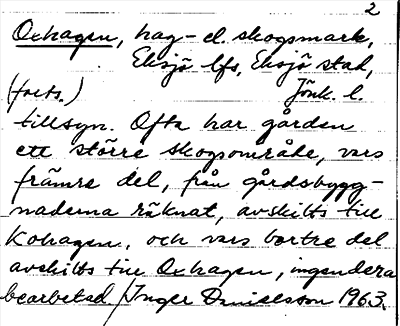 2
Oxhagen, hag- el. skogsmark,
Eksjö lfs, Eksjö stad,
(forts.) Jönk. l.
tillsyn. Ofta har gården
ett större skogsområde, vars
främre del, från gårdsbygg-
naderna räknat, avskilts till
Kohagen, och vars bortre del
avskilts till Oxhagen, ingendera
bearbetad / Inger Danielsson 1963.